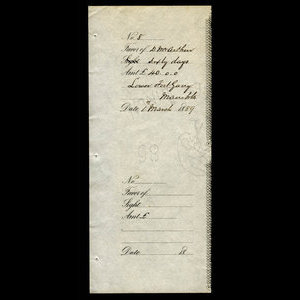 No 8
Favor of D McArthur
Sight Sixty days
Amt £ 40.0.0
Lower Fort Garry
Manitoba
Date 1st March 1889
No
Favor of
Sight
Amt £
Date 18